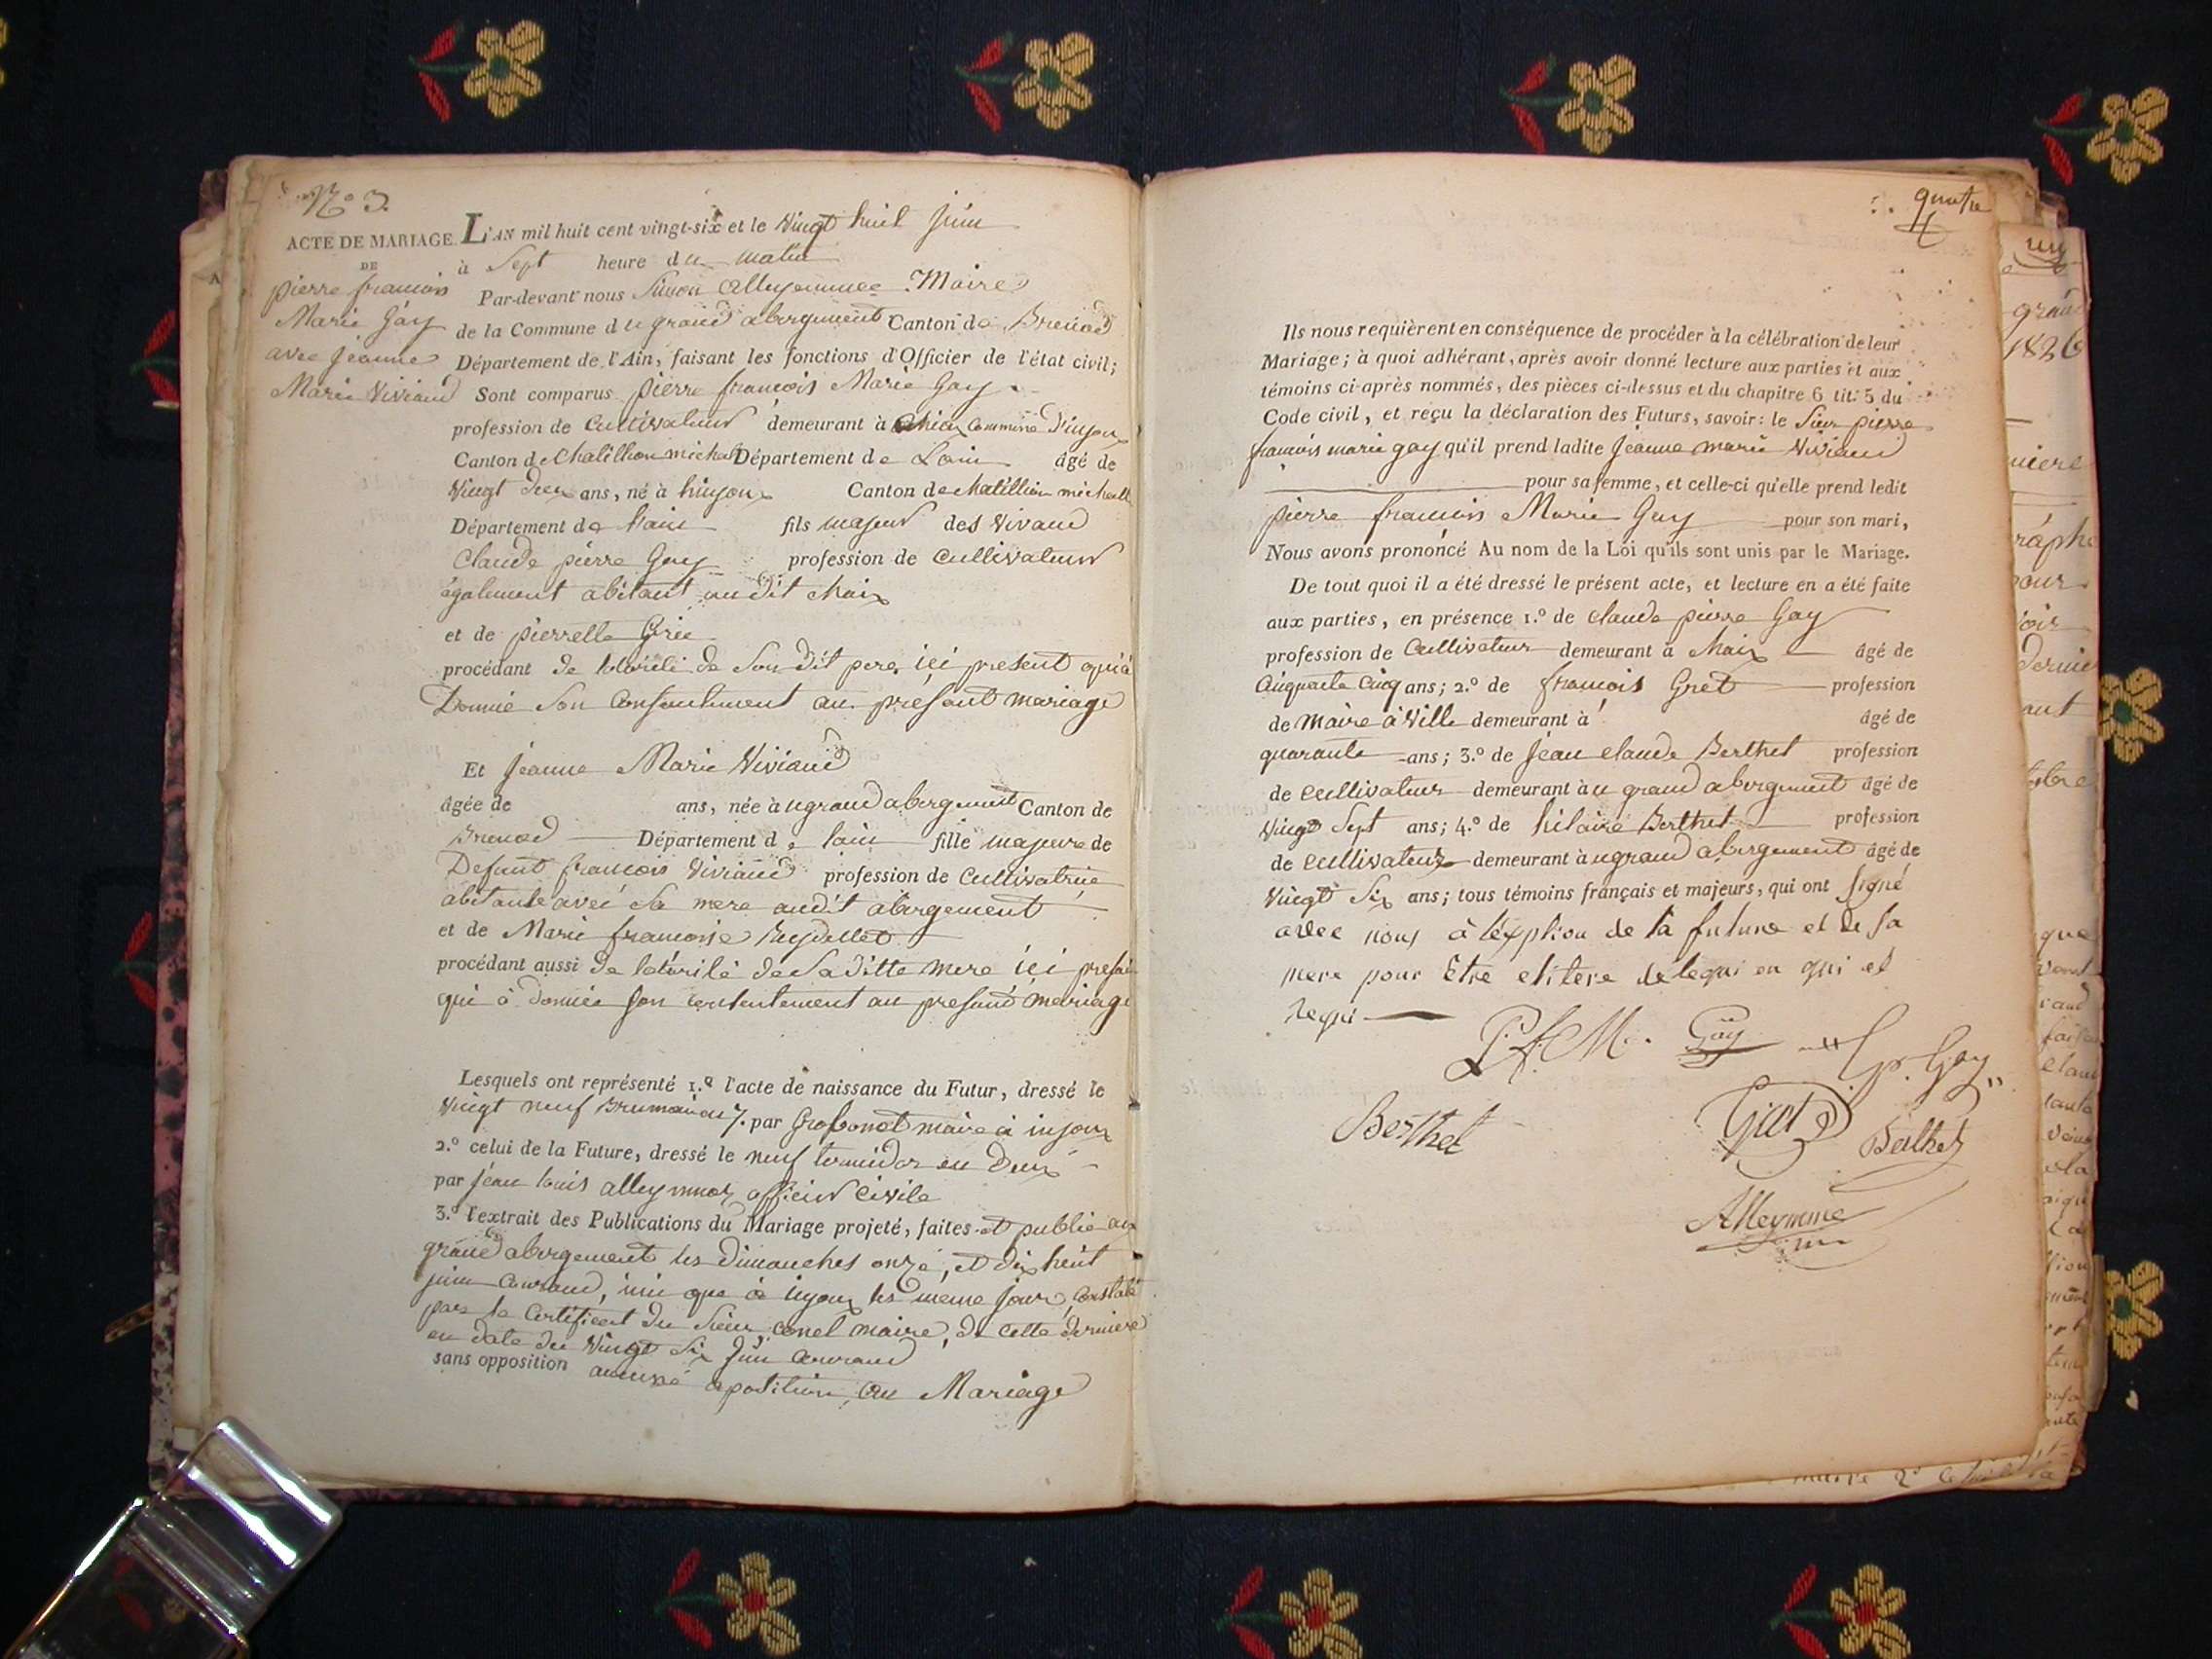 N.o 3.
ACTE DE MARIAGE
DE
pierre francois
Marie Gay
avec jeanne
Marie Viviand
L'AN mil huit cent vingt-six et le vingt huit juin
à Sept heure du matin
Par-devant nous Simon Alleymmoz Maire
de la Commune du grand abergement Canton de Brenod
Département de l'Ain, faisant les fonctions d'Officier de l'état civil;
Sont comparus pierre francois Marie Gay
profession de Cultivateur demeurant à Chaix commune d'injoux
Canton de Chatillion michal Département de Lain âgé de
Vingt ans, né à hinjoux Canton de chatillion michaille
Département de hain fils majeur des vivand
Claude pierre Gay profession de cultivateur
également abitant audit chaix
et de pierrette
procédant de de Son dit pere ici present qui à
Donnié Son consentement au present mariage
Et jeanne Marie Viviand
âgée de ans, née à ugrand abergement Canton de
Brenod Département de lain fille majeure de
Defunt francois Viviand profession de Cultivatrice
abitante avec Sa mere audit abergement
et de Marie francoise
procédant aussi de de Saditte mere ici
qui à donnié son au mariage
Lesquels ont représenté 1.o l'acte de naissance du Futur, dressé le
vingt neuf Brumair an 7. par Grosbonot maire à injoux
2.o celui de la Future, dressé le neuf termidor en Deux
par jean louis alleymmoz officier civile
3.o l'extrait des Publications du Mariage projeté, faites et publié au
grand abergement les dimanches onze, et dix heuit
juin courand, que à injoux les meme jour, constaté
par le Certificat du Sieur maire, de cette derniere
en date du vingt Six juin courand
sans opposition aucune apotition au Mariage
quatre
4
Ils nous requièrent en conséquence de procéder à la célébration de leur
Mariage; à quoi adhérant, après avoir donné lecture aux parties et aux
témoins ci-après nommés, des pièces ci-dessus et du chapitre 6 tit. 5 du
Code civil, et reçu la déclaration des Futurs, savoir: le Sieur pierre
francois marie gay qu'il prend ladite jeanne marie Viviand
pour sa femme, et celle-ci qu'elle prend ledit
pierre francois Marie Gay pour son mari,
Nous avons prononcé Au nom de la Loi qu'ils sont unis par le Mariage.
De tout quoi il a été dressé le présent acte, et lecture en a été faite
aux parties, en présence 1.o de claude pierre Gay
profession de Cultivateur demeurant à chaix âgé de
Cinquante Cinq ans; 2.o de francois Gret profession
de Maire à Ville demeurant à âgé de
quarante ans; 3.o de jean claude Berthet profession
de cultivateur demeurant à u grand abergement âgé de
vingt Sept ans; 4.o de hilaire Berthet profession
de cultivateur demeurant à ugrand abergement âgé de
vingt Six ans; tous témoins français et majeurs, qui ont signé
avec nous à de la future et de sa
mere pour Etre elitere delequi en qui et
requi
P. F. M. Gay
Cp. Gay
Berthet
Gret
Berthet
Alleymme